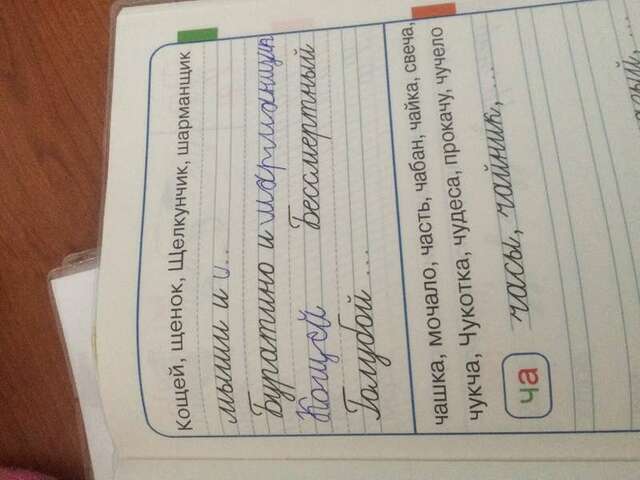 Кощей, щенок, Щелкунчик, шарманщик
мыши и
Буратино и шарманщик
Кощей Бессмертный
Голубой ...
чашка, мочало, часть, чабан, чайка, свеча,
чукча, Чукотка, чудеса, прокачу, чучело
ча часы, чайник, ...